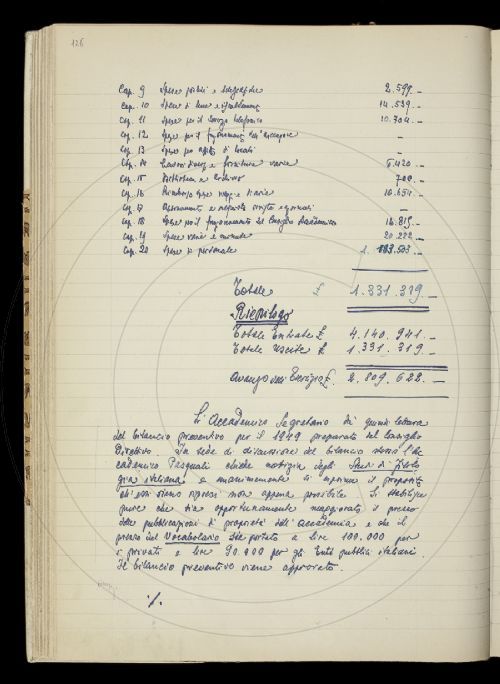 126
Cap. 9 Spese postali e telegrafiche 2.599.-
Cap. 10 Spese di luce e riscaldamento 14.539.-
Cap. 11 Spese per il servizio telefonico 10.704.-
Cap. 12 Spese per il funzionamento dell'ascensore -
Cap. 13 Spese per affitto di locali -
Cap. 14 e forniture varie 6.420.-
Cap. 15 Biblioteca e Archivio 700.-
Cap. 16 Rimborso spese viaggi e diarie 10.654.-
Cap. 17 Abbonamento e acquisto riviste e giornali
Cap. 18 Spese per il funzionamento del Consiglio Accademico 14.819.-
Cap. 19 Spese varie e minute 20.222.-
Cap. 20 Spese p. personale
Totale £ 1.331.319.-
Riepilogo
Totale Entrate £ 4.140.941.-
Totale Uscite £ 1.331.319.-
Avanzo dell'Esercizio £. 2.809.622.-
L'Accademico Segretario dà quindi lettura
del bilancio preventivo per il 1949 preparato dal Consiglio
Direttivo. In sede di discussione del bilancio stesso l'Ac
cademico Pasquali chiede notizia degli Studi di Filolo
gia italiana e unanimemente si esprime il proposito
ch'essi siano ripresi non appena possibile. Si stabilisce
pure che sia opportunamente maggiorato il prezzo
delle pubblicazioni di proprietà dell'Accademia e che il
prezzo del Vocabolario sia portato a lire 100.000 per
i privati e lire 90.000 per gli Enti pubblici italiani.
Il bilancio preventivo viene approvato.
./.